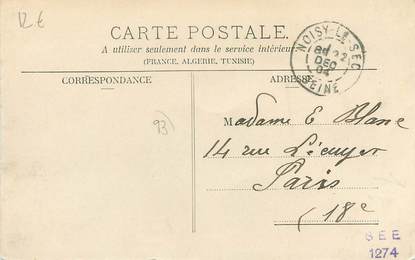 12 €
CARTE POSTALE.
A utiliser seulement dans le service intérieur
(FRANCE, ALGERIE, TUNISIE)
NOISY-LE-SEC
22
DEC
04
SEINE
CORRESPONDANCE
ADRESSE
93
Madame E Blanc
14 rue Lécuyer
Paris
18e
SEE
1274